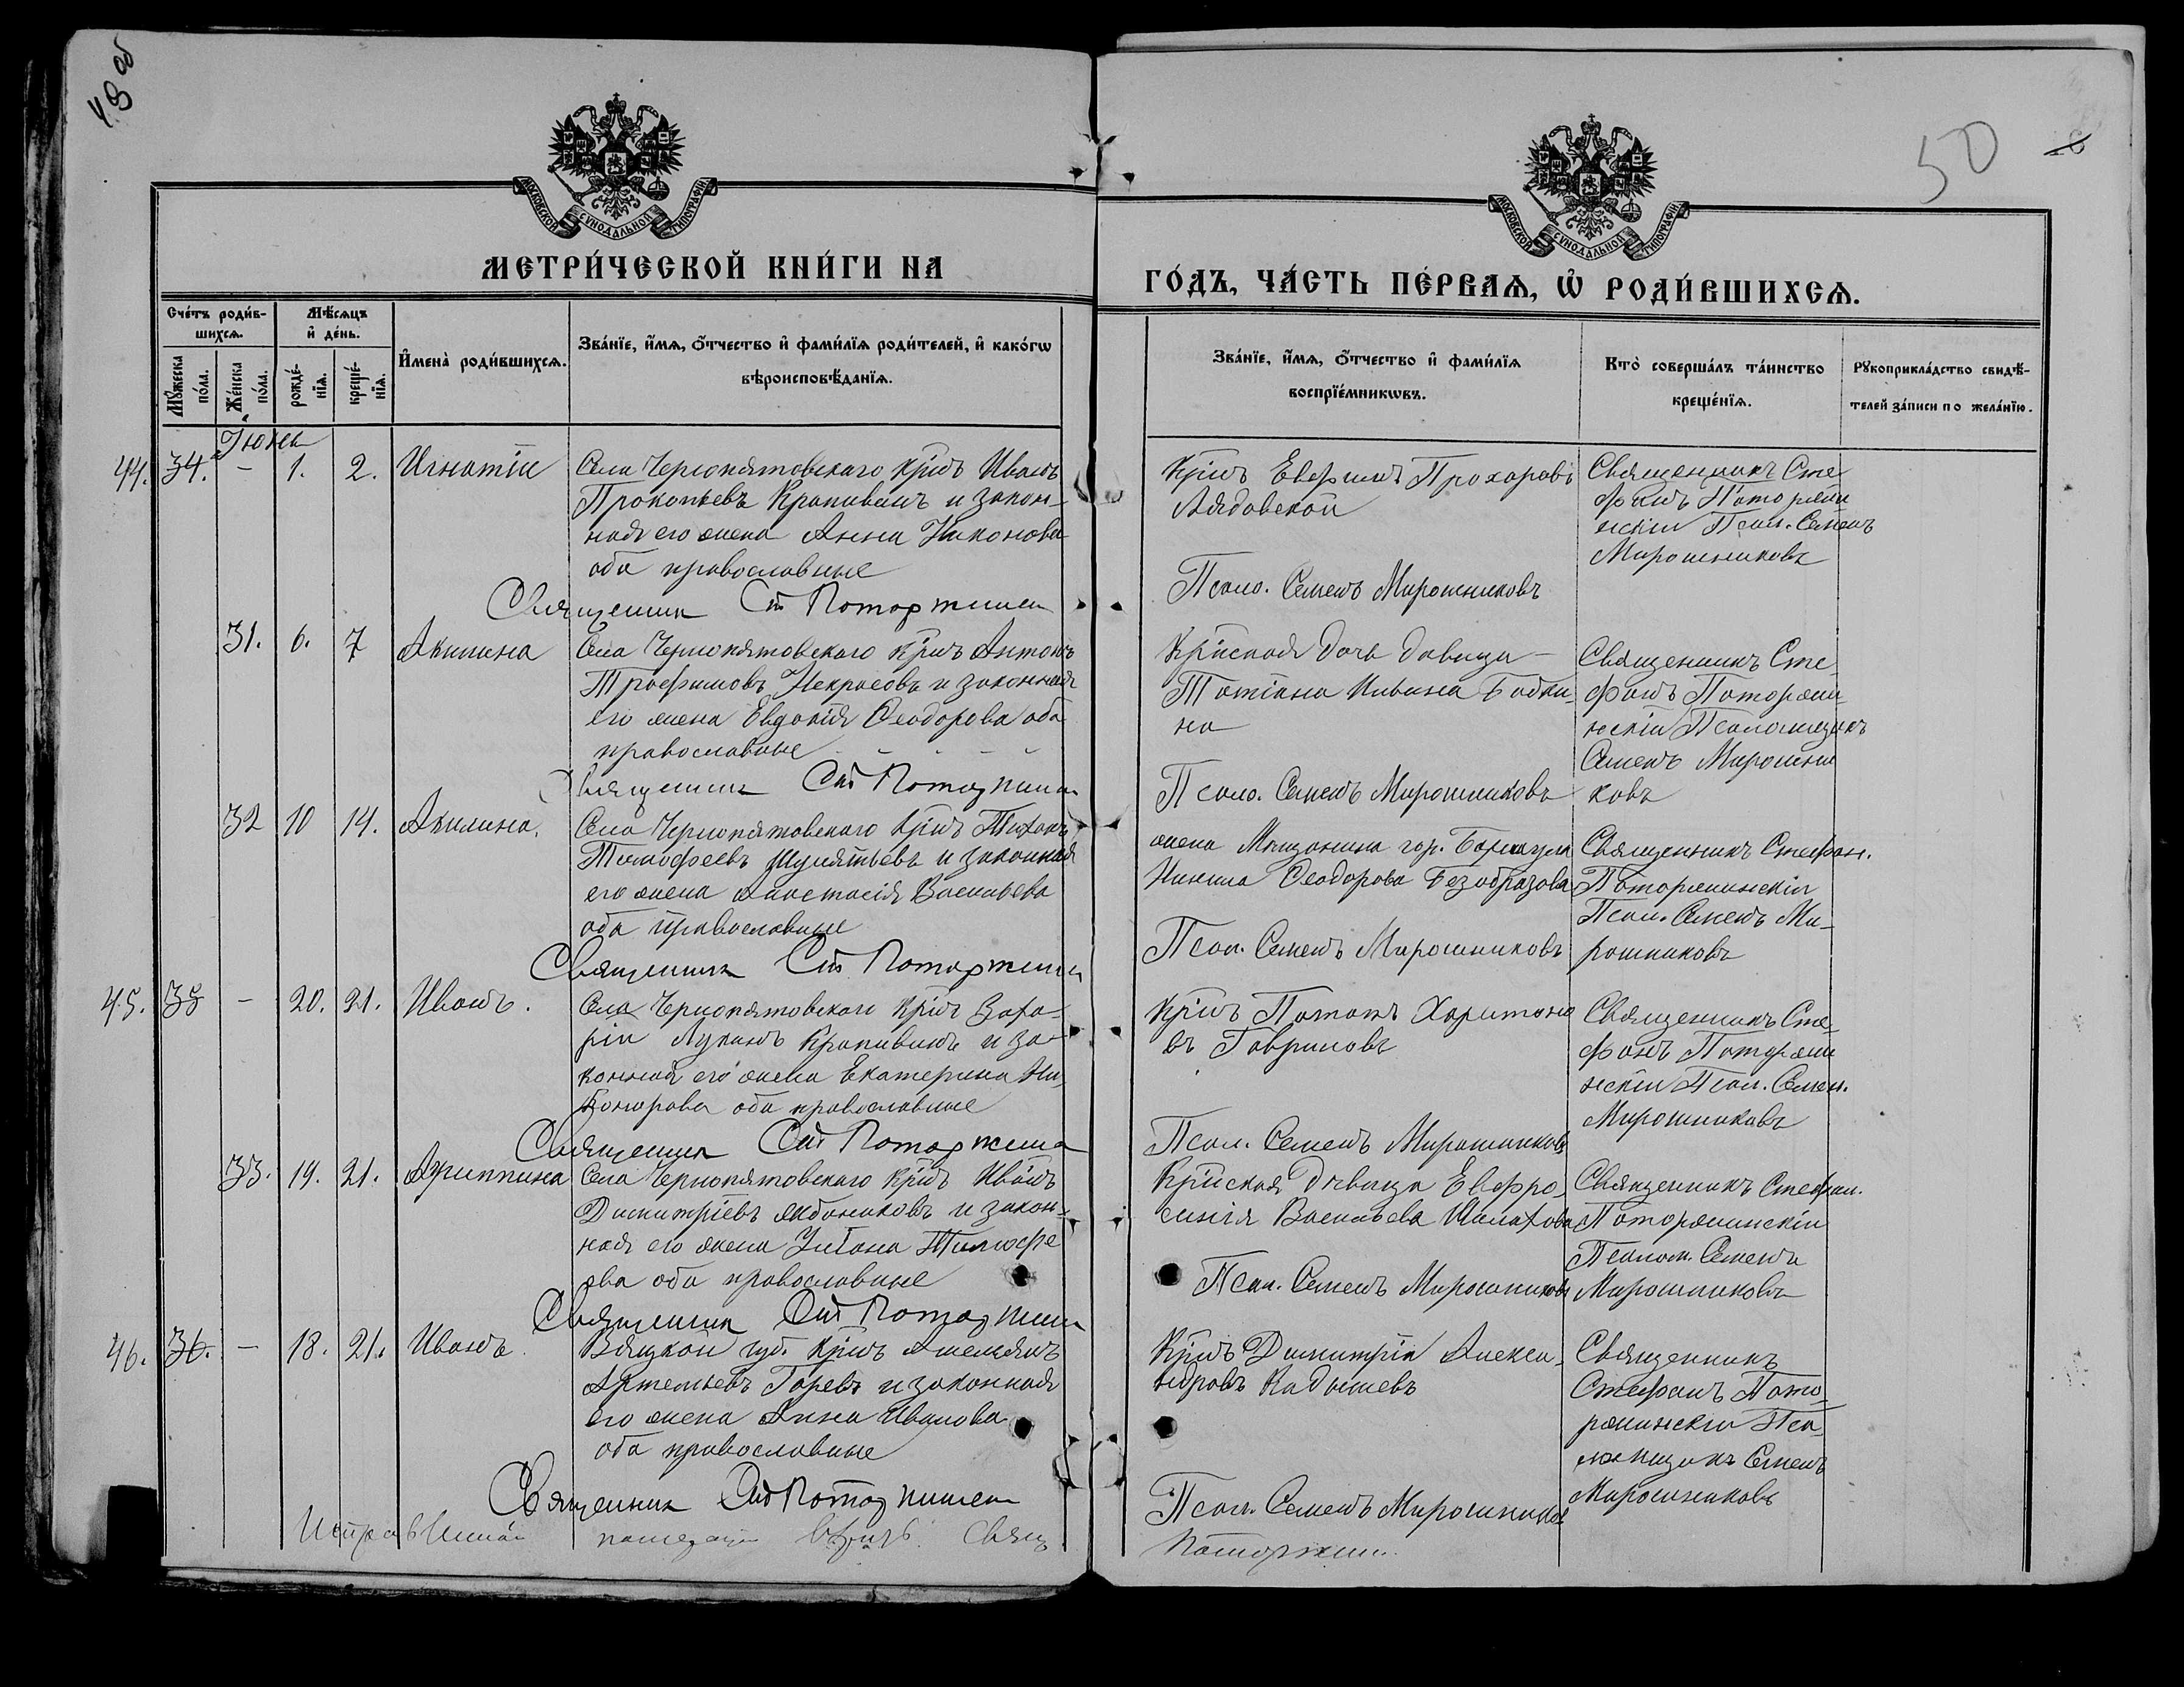 48 об
50
МОСКОВСКОЙ СУНОДАЛЬНОЙ ТИПОГРАФІИ
МОСКОВСКОЙ СУНОДАЛЬНОЙ ТИПОГРАФІИ
МЕТРИ́ЧЕСКОЙ КНИ́ГИ НА
ГО́ДЪ, ЧА́СТЬ ПЕ́РВАѦ, Ѡ҆ РОДИ́ВШИХСѦ.
Сче́тъ роди́в-
шихсѧ.
Мѣ́сѧцъ
и҆ де́нь.
Мꙋ́жеска по́ла.
Же́нска по́ла.
рожде́-
нїѧ.
креще́-
нїѧ.
И҆мена̀ роди́вшихсѧ.
Зва́нїе, и҆́мѧ, ѻ҆́тчество и҆ фами́лїѧ роди́телей, и҆ како́гѡ
вѣроисповѣ́данїѧ.
Зва́нїе, и҆́мѧ, ѻ҆́тчество и҆ фами́лїѧ
воспрїе́мникѡвъ.
Кто̀ соверша́лъ та́инство
креще́нїѧ.
Рꙋкоприкла́дство свидѣ́-
телей за́писи по жела́нїю.
Іюнь
44. 34. - 1. 2. Игнатій
Села Чернопятовскаго кр҃інъ Иванъ
Прокопьевъ Крапивинъ и закон-
ная его жена Анна Никонова
оба православные
Священник Ст Поторжинск
Кр҃інъ Евфимъ Прохоровъ
Лядовской
Псало. Семенъ Мирошниковъ
Священникъ Сте
фанъ Поторжи
нскій Псал. Семенъ
Мирошниковъ
31. 6. 7 Акилина
Села Чернопятовскаго кр҃інъ Антонъ
Трофимовъ Некрасовъ и законная
его жена Евдокія Ѳеодорова оба
православные - - - -
Священник Ст Поторжинск
Кр҃інская дочь девица -
Татіана Ивина Бабки-
на
Псало. Семенъ Мирошниковъ
Священникъ Сте
фанъ Поторжи
нскій Псаломщикъ
Семенъ Мирошни
ковъ
32 10 14. Акилина.
Села Чернопятовскаго кр҃інъ Тихонъ
Тимофеевъ Шулятьевъ и законная
его жена Анастасія Васильева
оба православные
Священник Ст Поторжинск
жена Мещанина гор. Барнаула
Ѳеодорова Безобразова
Псал. Семенъ Мирошниковъ
Священникъ Стефан.
Поторжинскій
Псал. Семенъ Ми-
рошниковъ
45. 35 - 20. 21. Иванъ.
Села Чернопятовскаго кр҃інъ Заха-
рій Лукинъ Крапивинъ и за-
конная его жена Екатерина Ни-
конорова оба православные
Священник Ст Поторжинск
Кр҃інъ Потапъ Харитоно
въ Гавриловъ
Псал. Семенъ Мирошниковъ
Священникъ Сте-
фанъ Поторжи
нскій Псал. Семен.
Мирошниковъ
33. 19. 21. Агриппина
Села Чернопятовскаго кр҃інъ Иванъ
Димитріевъ и закон-
ная его жена Уліана Тимофе
ева оба православные
Священник Ст Поторжинск
Кр҃інская девица Евфро-
синія Васильева Шалахова
Псал. Семенъ Мирошниковъ
Священникъ Стефан.
Поторжинскій
Псалом. Семенъ
Мирошниковъ
46. 36. - 18. 21. Иванъ
Вяцкой губ. кр҃інъ Амельянъ
Артемьевъ Горевъ и законная
его жена Анна Иванова
оба православные
Священник Ст Поторжинск
Кр҃інъ Димитрій Алекса-
ндровъ Кадышевъ
Псал. Семенъ Мирошников
Священникъ
Стефанъ Пото-
ржинскій Пса-
ломщикъ Семенъ
Мирошниковъ
вѣрить Свящ. Поторжин.